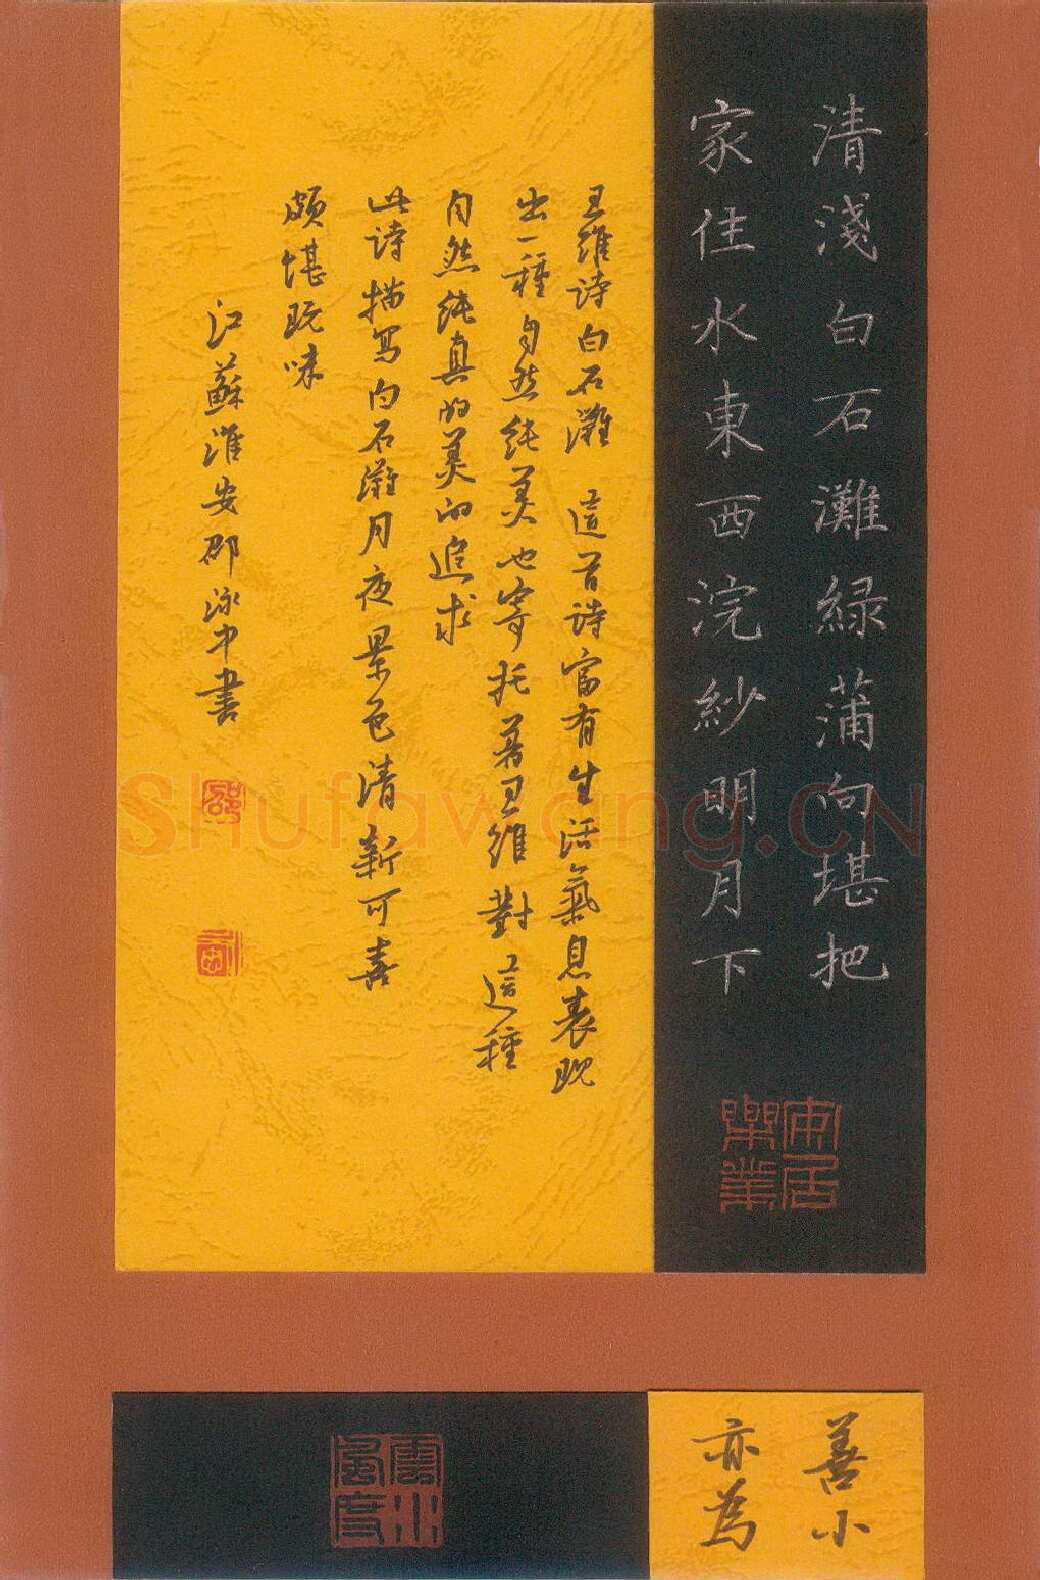 清淺白石灘綠蒲向堪把
家住水東西浣紗明月下
安居
樂業
王維詩白石灘 這首詩富有生活氣息表現
出一種自然純美也寄托著王維對這種
自然純真的美的追求
此詩描写白石灘月夜景色清新可喜
頗堪玩味
江蘇淮安邵泳中書
邵
Shufawang.CN
善小
亦為
雲水
風度